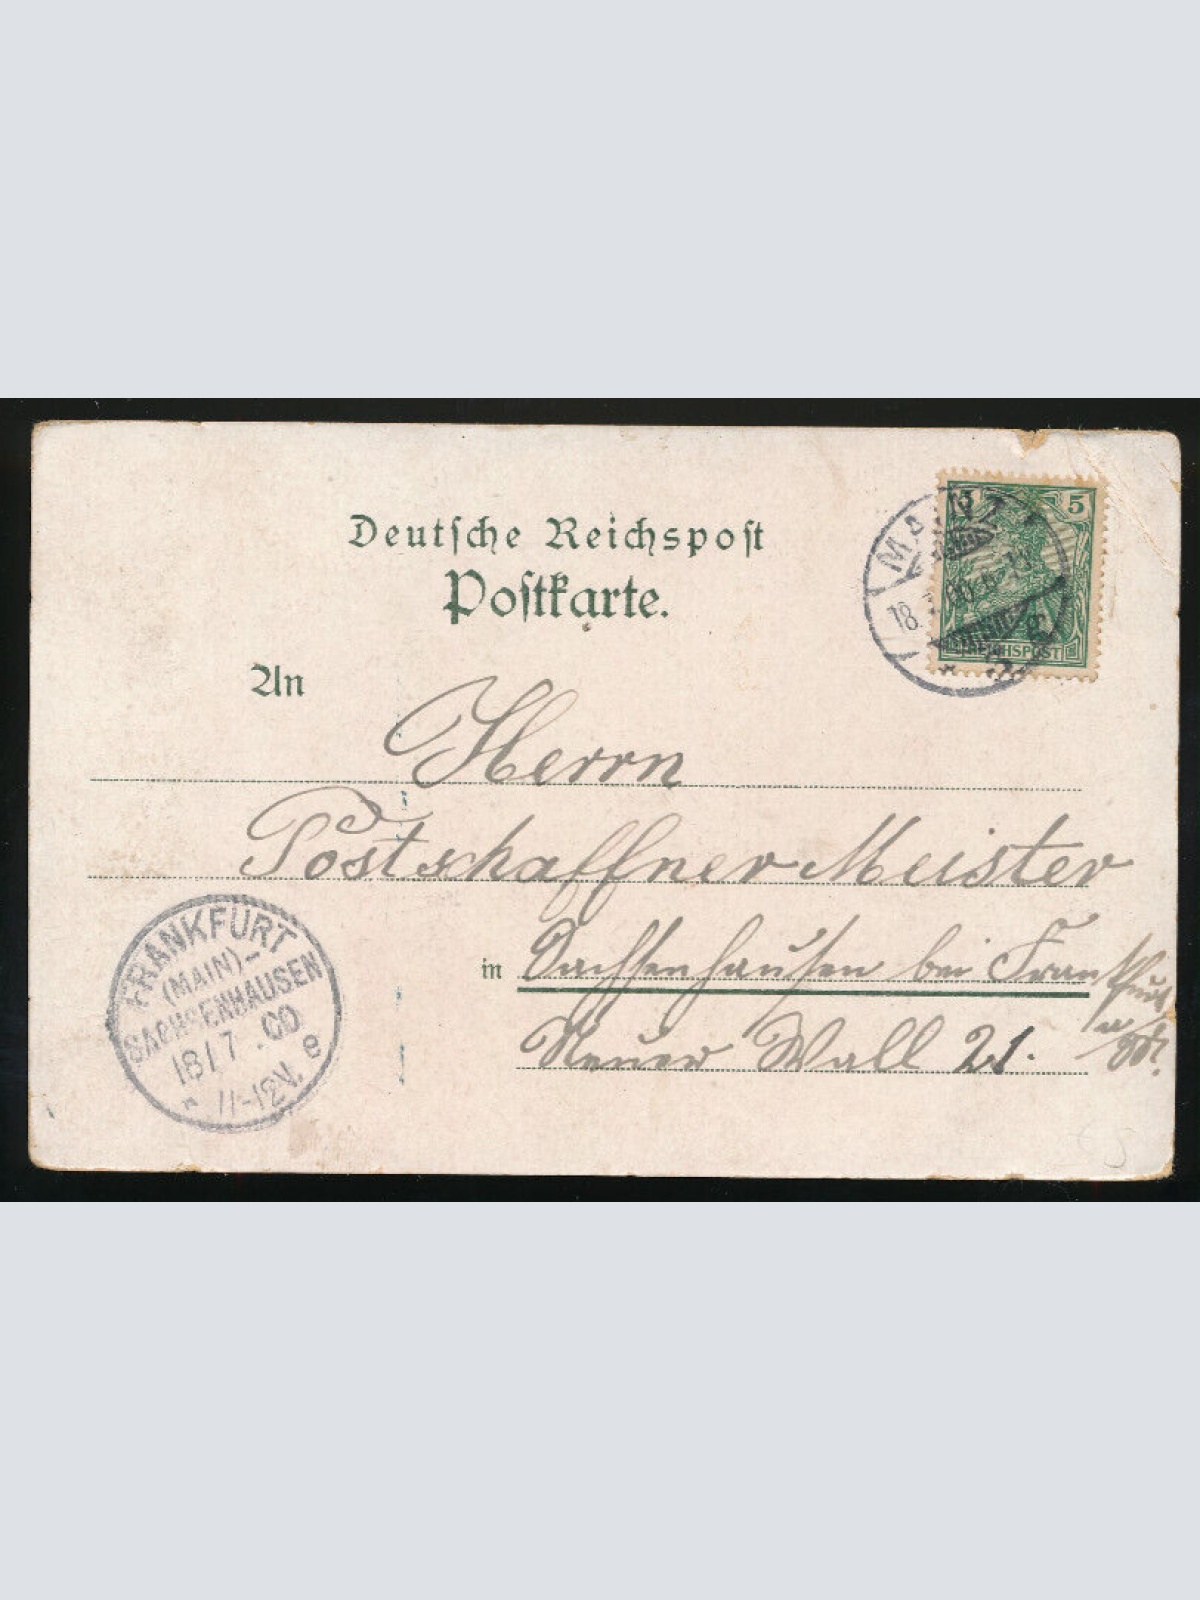 Deutsche Reichspost
Postkarte.
5
MAINZ
18.
REICHSPOST
An
Herrn
Postschaffner Meister
in Sachsenhausen bei Frankfurt
a/M.
Neuer Wall 21.
FRANKFURT
(MAIN)-
SACHSENHAUSEN
18/7.00
11-12V.
e